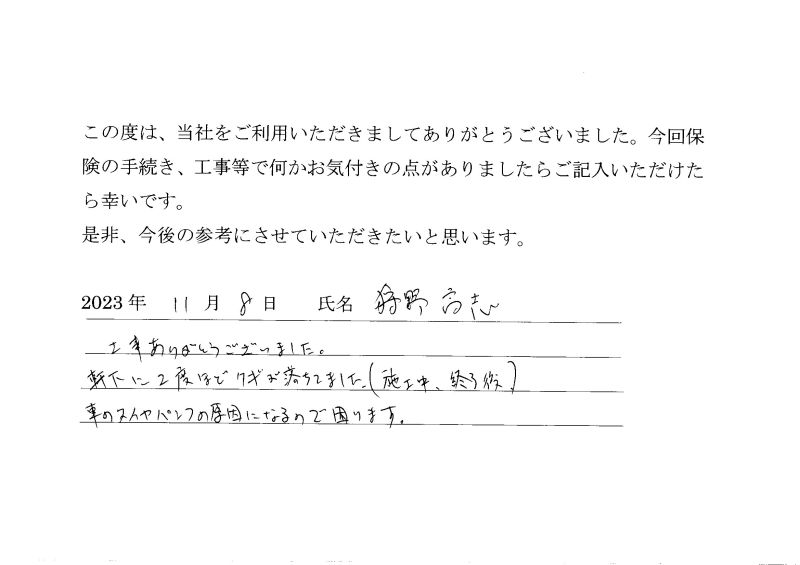 この度は、当社をご利用いただきましてありがとうございました。今回保
険の手続き、工事等で何かお気付きの点がありましたらご記入いただけた
ら幸いです。
是非、今後の参考にさせていただきたいと思います。
2023 年 11 月 8 日 氏名 狩野 高志
工事ありがとうございました。
軒下に2度ほどクギが落ちてました。(施工中、終了後)
車のタイヤパンクの原因になるので困ります。